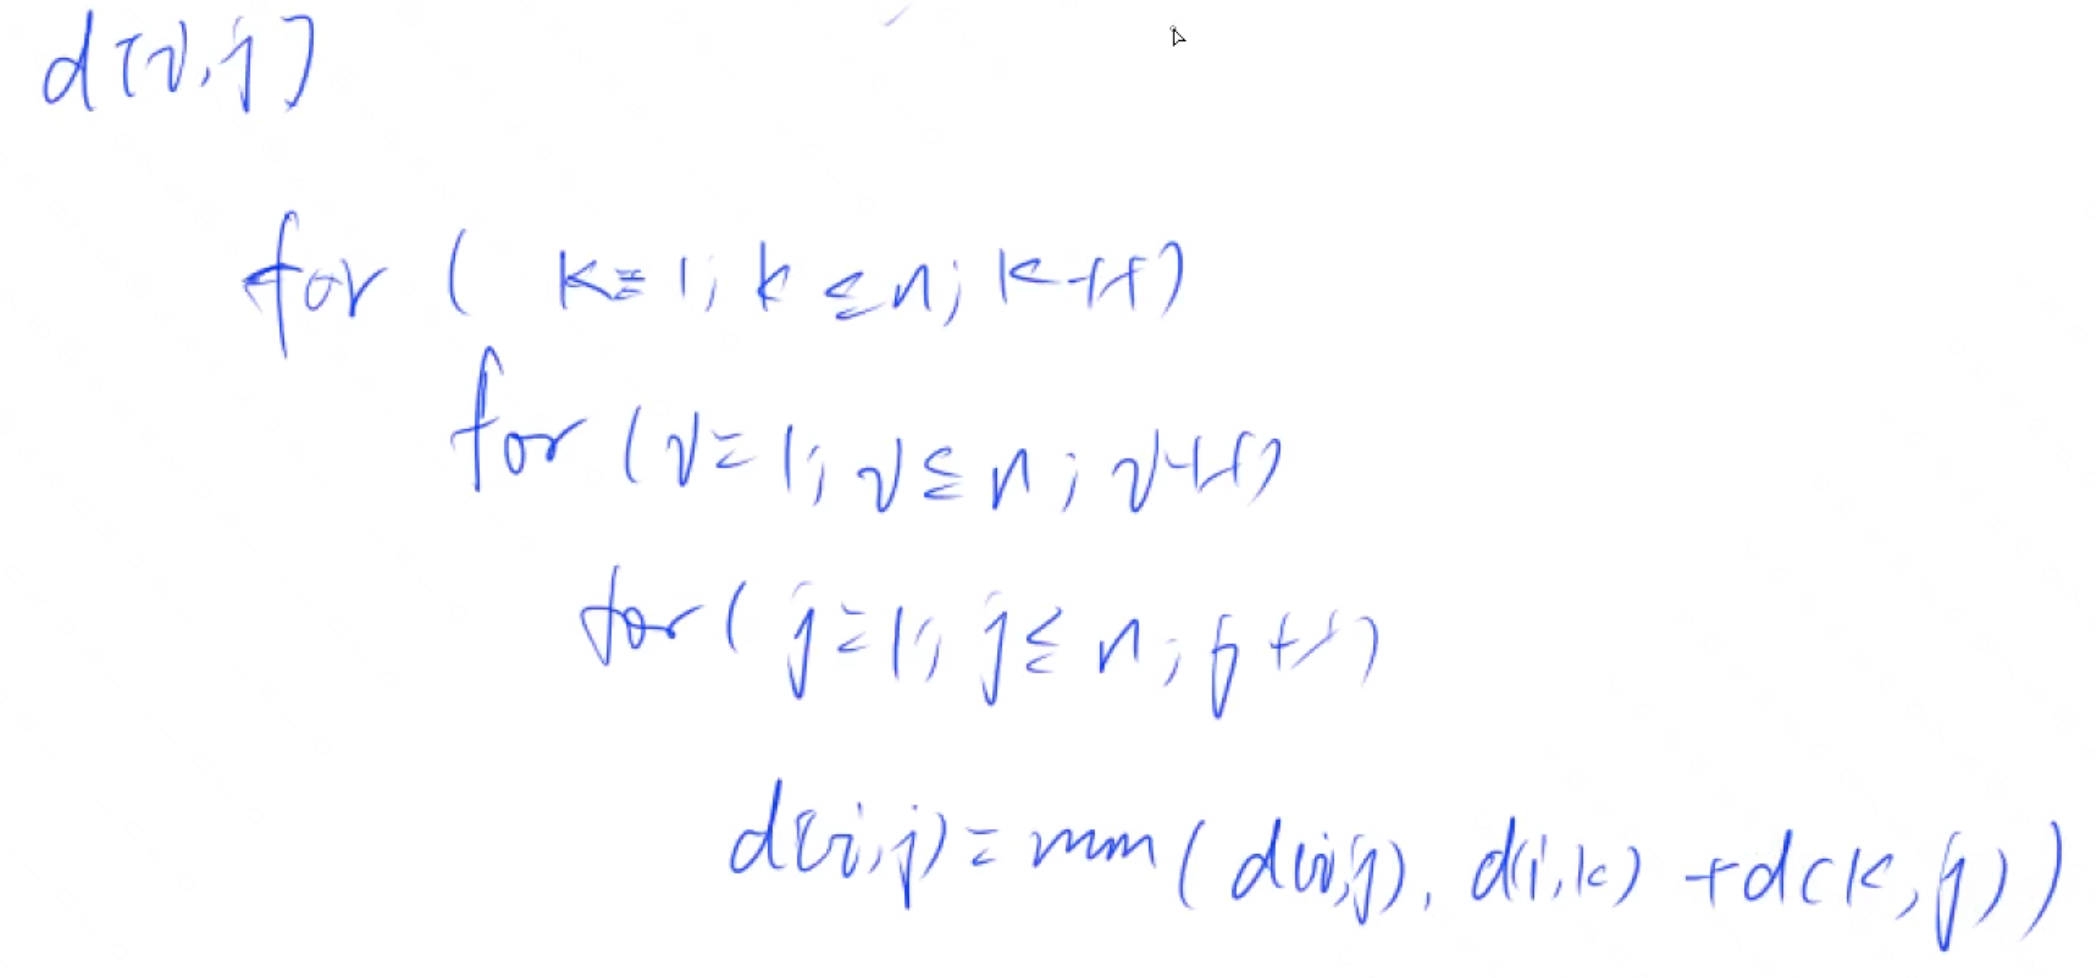 d[i,j]
for ( k=1; k≤n; k++)
for (i=1; i≤n; i++)
for ( j=1; j≤n; j++)
d(i,j)=min(d(i,j), d(i,k) +d(k,j))